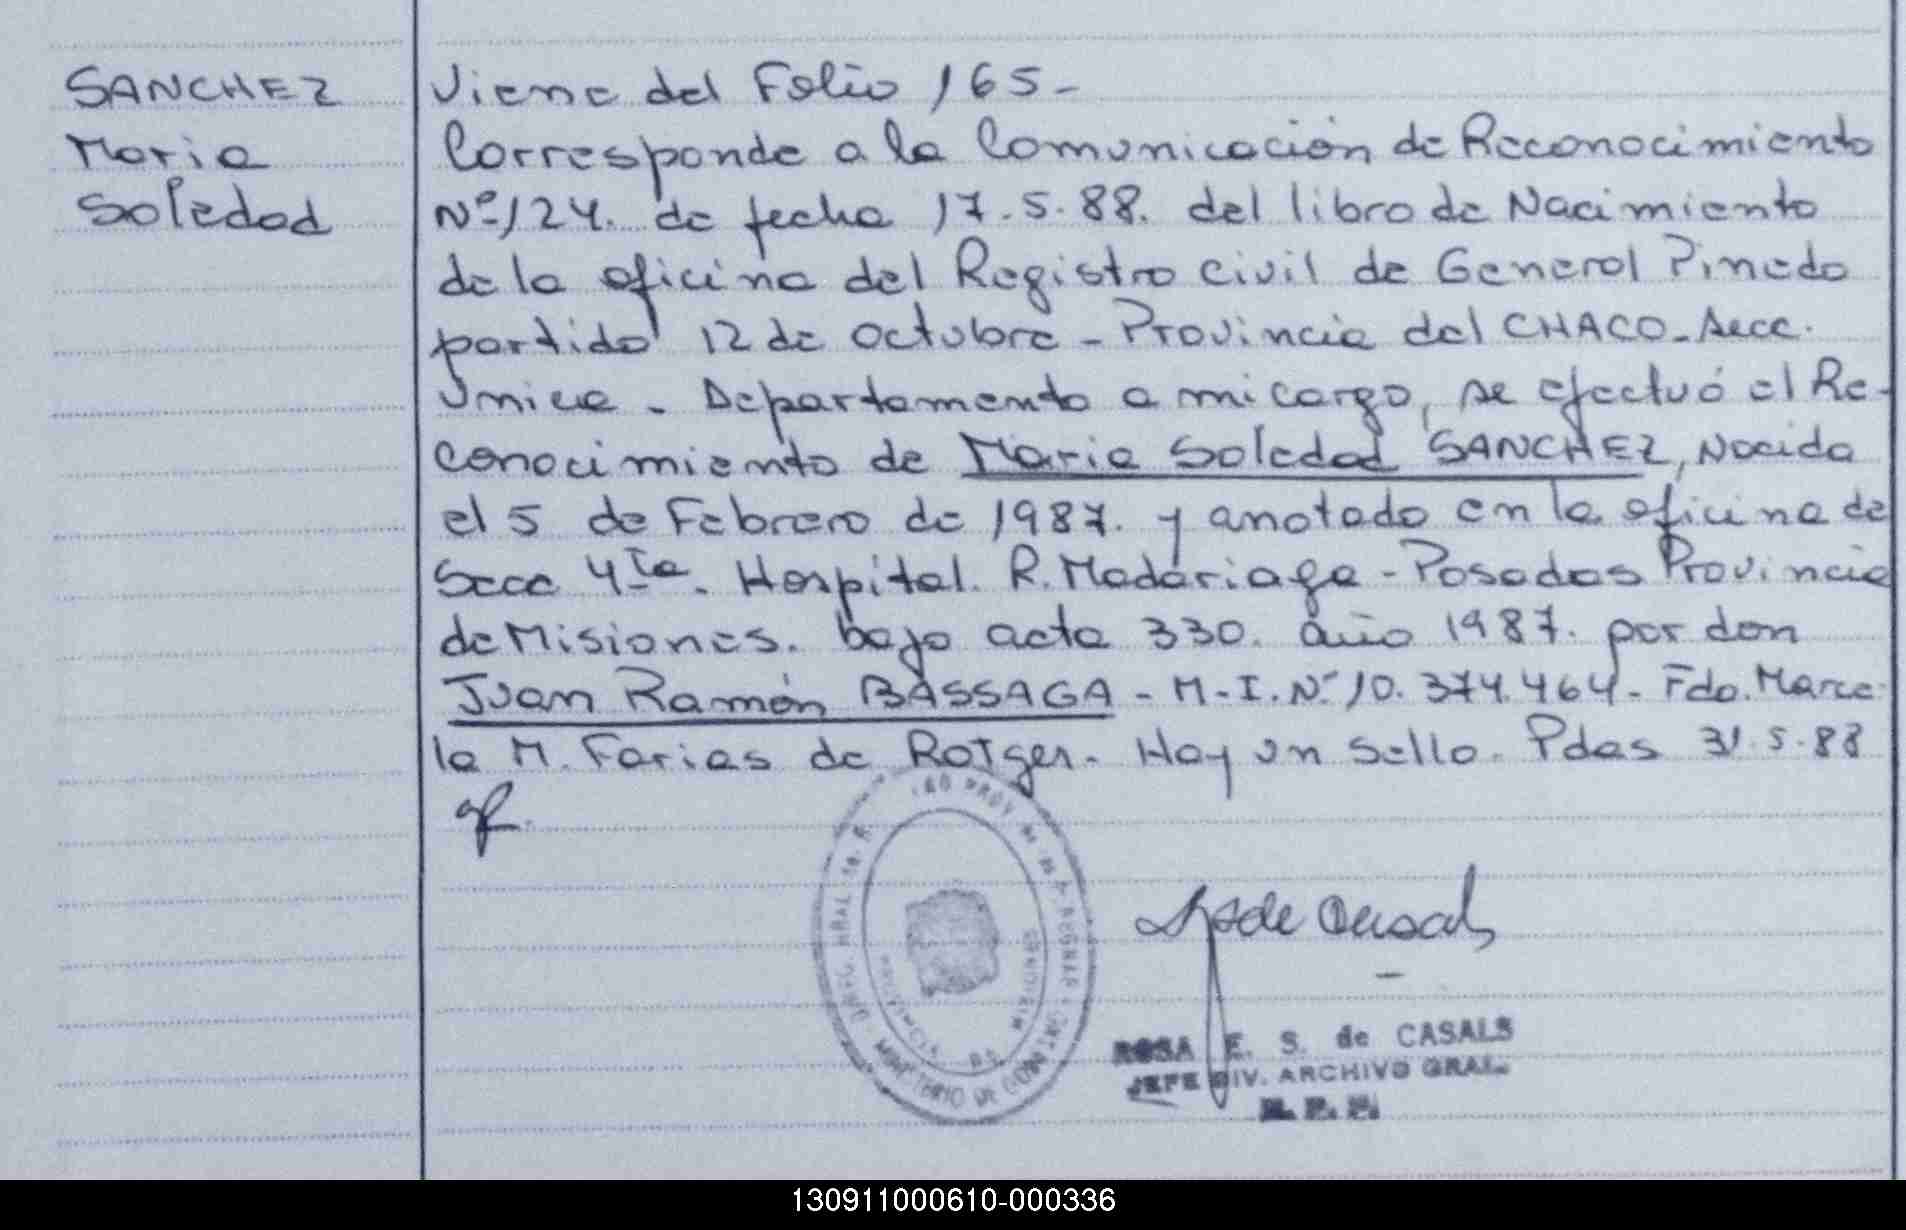 SANCHEZ
Maria
Soledad
Viene del Folio 165-
Corresponde a la Comunicación de Reconocimiento
Nº 124. de fecha 17.5.88. del libro de Nacimiento
de la oficina del Registro civil de General Pinedo
partido 12 de Octubre - Provincia del CHACO - Secc.
Unica - Departamento a mi cargo, se efectuó el Re-
conocimiento de Maria Soledad SANCHEZ, Nacida
el 5 de Febrero de 1987. y anotado en la oficina de
Secc 4ta. Hospital. R. Madariaga - Posadas Provincia
de Misiones. bajo acta 330. año 1987. por don
Juan Ramón BASSAGA - M-I. Nº 10.374.464 - Fdo. Marce-
la M. Farias de Rotger. Hay un sello. Pdas 31.5.88
ROSA E. S. de CASALS
JEFE DIV. ARCHIVO GRAL.
130911000610-000336